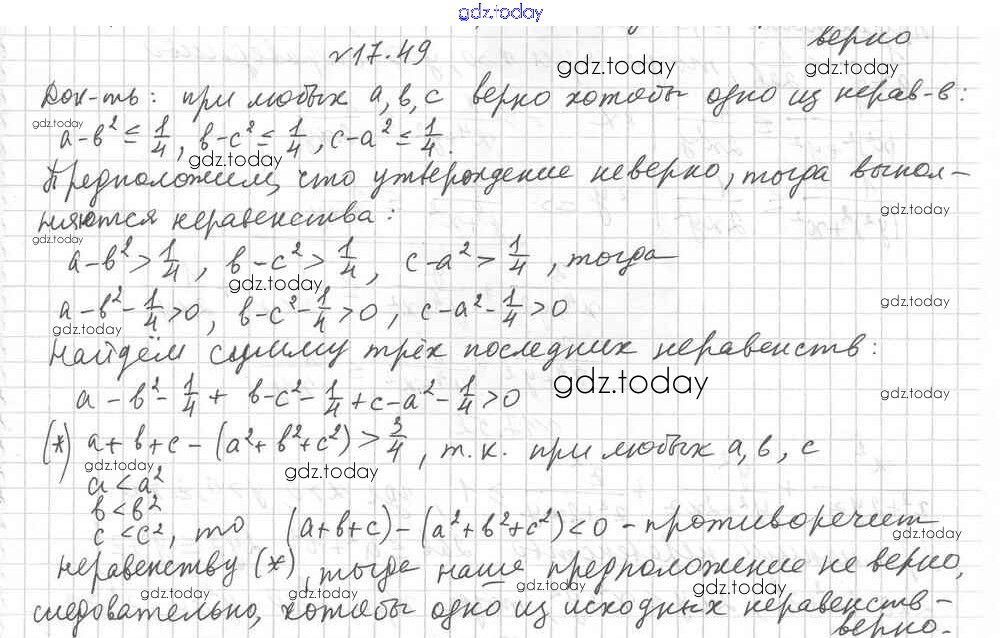 gdz.today
верно
№17.49
gdz.today
Док-ть: при любых а, в, с верно хотя бы одно из нерав-в:
gdz.today
a-в²≤1/4, в-с²≤1/4, с-а²≤1/4.
gdz.today
Предположим, что утверждение неверно, тогда выпол-
няются неравенства:
gdz.today
gdz.today
a-в²>1/4, в-с²>1/4, с-а²>1/4, тогда
gdz.today
a-в²-1/4>0, в-с²-1/4>0, с-а²-1/4>0
gdz.today
gdz.today
Найдём сумму трёх последних неравенств:
a-в²-1/4+ в-с²-1/4+с-а²-1/4>0
gdz.today
gdz.today
(*) a+в+с-(а²+в²+с²)>3/4, т.к. при любых а, в, с
gdz.today
gdz.today
a<a²
в<в²
с<с², то (а+в+с)-(а²+в²+с²)<0 - противоречит
gdz.today
неравенству (*), тогда наше предположение не верно,
gdz.today
gdz.today
gdz.today
gdz.today
следовательно, хотя бы одно из исходных неравенств-
верно.